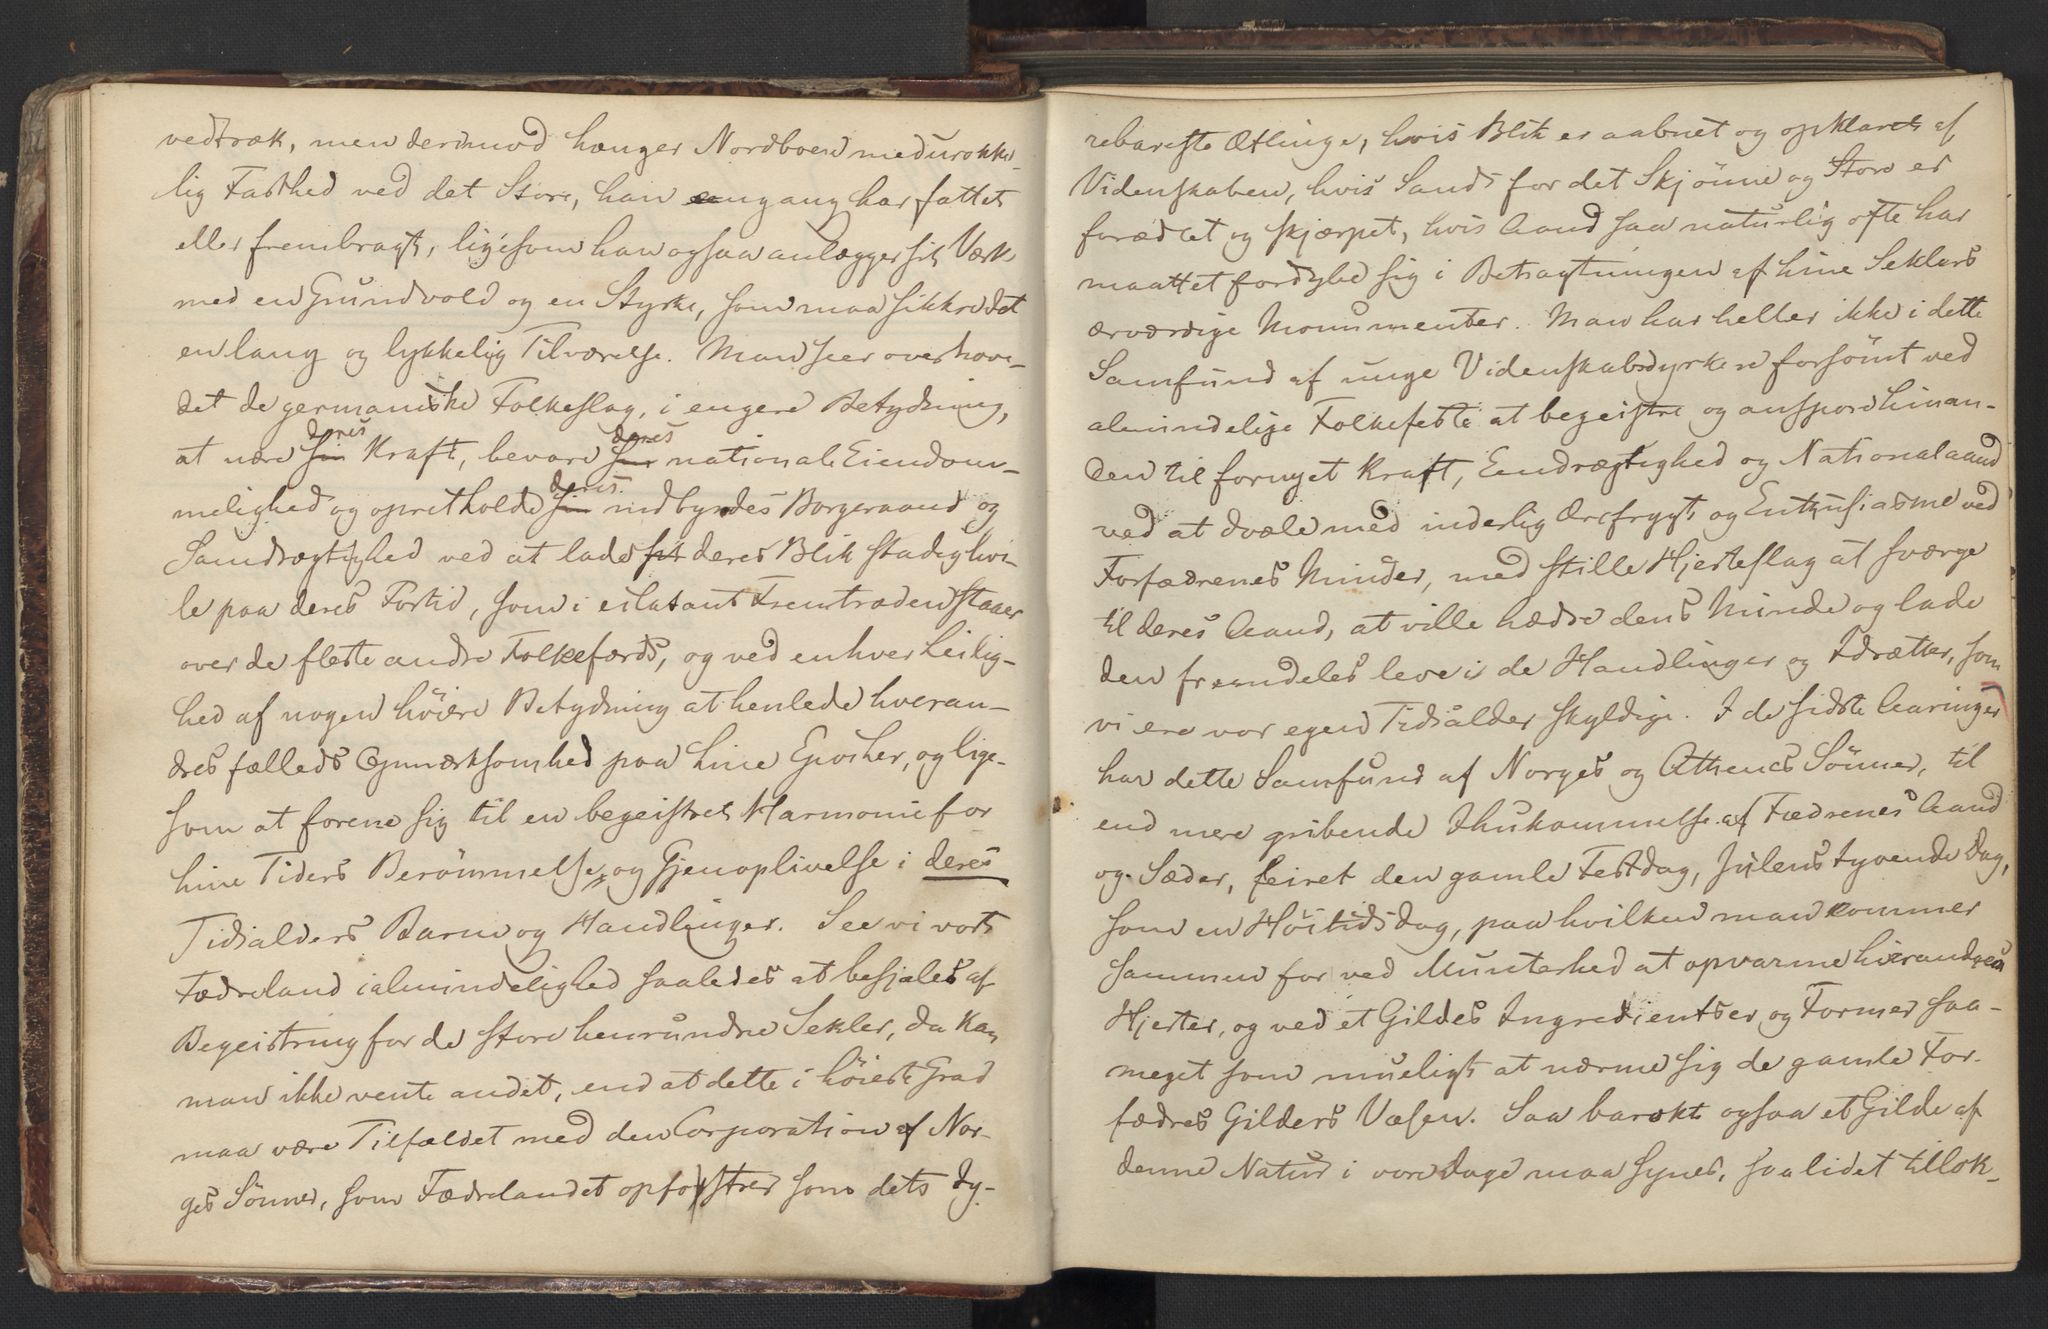 vedtræk, men derimod hænger Nordboen med urokke-
lig Fasthed ved det Store, han engang har fattet
eller frembragt, ligesom han ogsaa anlægger sit Værk
med en Grundvold og en Styrke, som maa sikkre det
en lang og lykkelig Tilværelse. Man seer overhove-
det de germaniske Folkeslag, i engere Betydning,
at nære sin deres Kraft, bevare sin deres nationale Eiendom-
melighed og opretholde sin deres indbyrdes Borgeraand og
Samdrægtighed ved at lade sit deres Blik stadig hvi-
le paa deres Fortid, som i eclatant Fremtræden staaer
over de fleste andre Folkefærds, og ved enhver Leilig-
hed af nogen høiere Betydning at henlede hveran-
dres fælleds Opmærksomhed paa hine Epoker, og lige-
som at forene sig til en begeistret Harmonie for
hine Tiders Berømmelse, og Gjenoplivelse i deres
Tidsalders Barm og Handlinger. See vi vort
Fædreland i almindelighed saaledes at besjæles af
Begeistring for de store henrundne Sekler, da kan
man ikke vente andet, end at dette i høieste Grad
maa være Tilfældet med den Corporation af Nor-
ges Sønner, som Fædrelandet opfostrer som dets dy-
rebareste Ætlinge, hvis Blik er aabnet og opklaret af
Videnskaben, hvis Sands for det Skjønne og Store er
forædlet og skjærpet, hvis Aand saa naturlig ofte har
maattet fordybe sig i Betragtningen af hine Seklers
ærværdige Monumenter. Man har heller ikke i dette
Samfund af unge Videnskabsdyrkere forsømt ved
almindelige Folkefeste at begeistre og anspore hinan-
den til fornyet Kraft, Eendrægtighed og Nationalaand
ved at dvæle med inderlig Ærefrygt og Enthusiasme ved
Forfædrenes Minder, med stille Hjerteslag at sværge
til deres Aand, at ville hædre dens Minde og lade
den fremdeles leve i de Handlinger og Idrætter, som
vi ere vor egen Tidsalder skyldige. I de sidste Aaringer
har dette Samfund af Norges og Athenes Sønner, til
end mere gribende Ihukommelse af Fædrenes Aand
og Sæder, feiret den gamle Festdag, Julens tyvende Dag,
som en Høitidsdag, paa hvilken man kommer
sammen for ved Munterhed at opvarme hverandres
Hjerter, og ved et Gildes Ingredientser og Former saa-
meget som mueligt at nærme sig de gamle For-
fædres Gilders Væsen. Saa barokt ogsaa et Gilde af
denne Natur i vore Dage maa synes, saa lidet tillok-